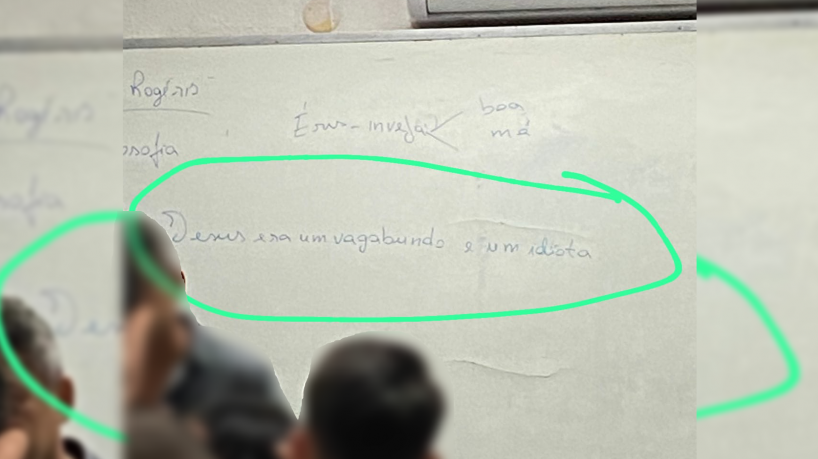 Rogério
osofia
Érus-inveja
boa
má
Jesus era um vagabundo e um idiota